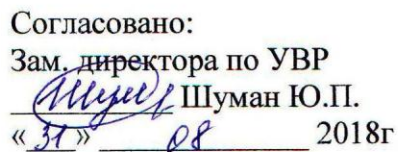 Согласовано:
Зам. директора по УВР
Шуман Ю.П.
«31» 08 2018г